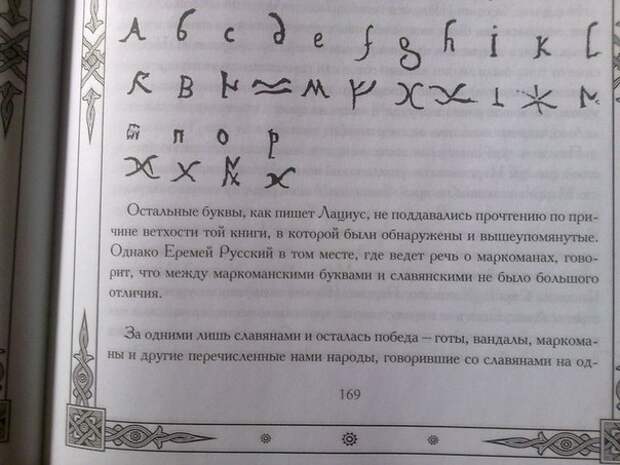 A b c d e f g h i k l
m n o p
Остальные буквы, как пишет Лациус, не поддавались прочтению по при-
чине ветхости той книги, в которой были обнаружены и вышеупомянутые.
Однако Еремей Русский в том месте, где ведет речь о маркоманах, гово-
рит, что между маркоманскими буквами и славянскими не было большого
отличия.
За одними лишь славянами и осталась победа – готы, вандалы, маркома-
ны и другие перечисленные нами народы, говорившие со славянами на од-
169